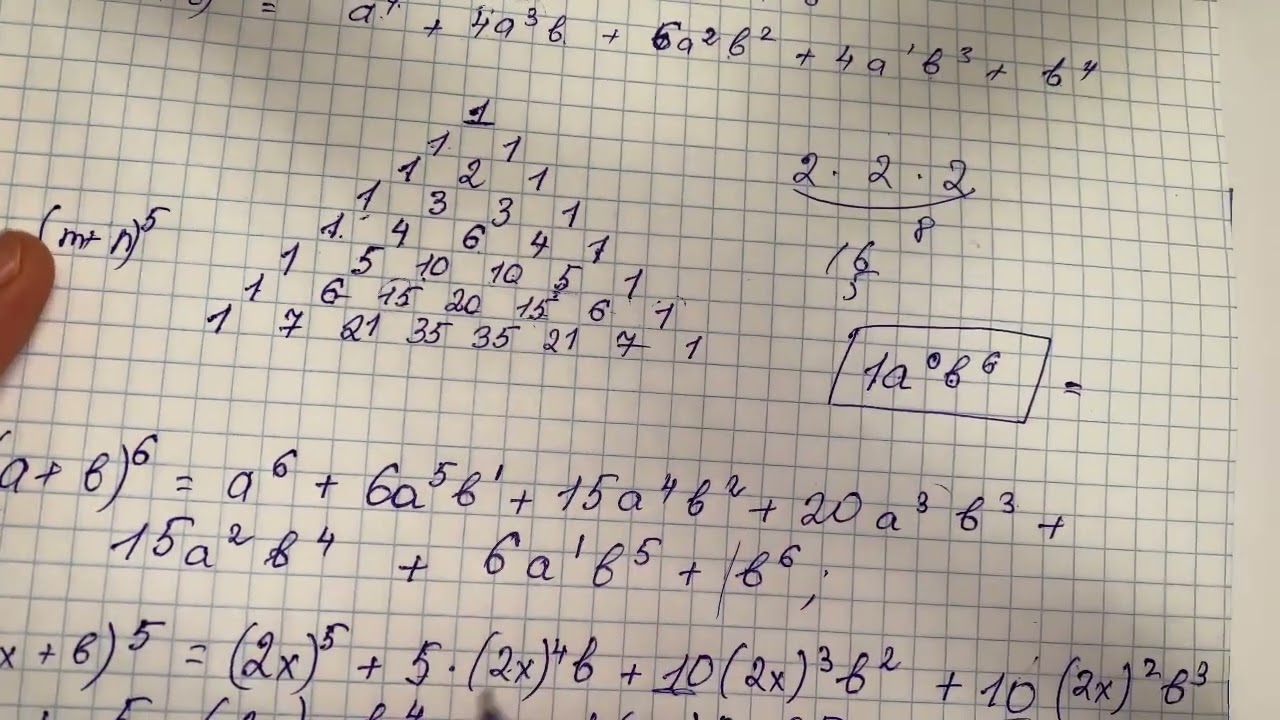 ) = a⁴ + 4a³b + 6a²b² + 4a¹b³ + b⁴
1
1 1
1 2 1
1 3 3 1
1 4 6 4 1
1 5 10 10 5 1
1 6 15 20 15 6 1
1 7 21 35 35 21 7 1
(m+n)⁵
2 · 2 · 2
8
16
1a⁰b⁶ =
(a + b)⁶ = a⁶ + 6a⁵b¹ + 15a⁴b² + 20a³b³ +
15a²b⁴ + 6a¹b⁵ + 1b⁶;
x + b)⁵ = (2x)⁵ + 5·(2x)⁴b + 10(2x)³b² + 10(2x)²b³